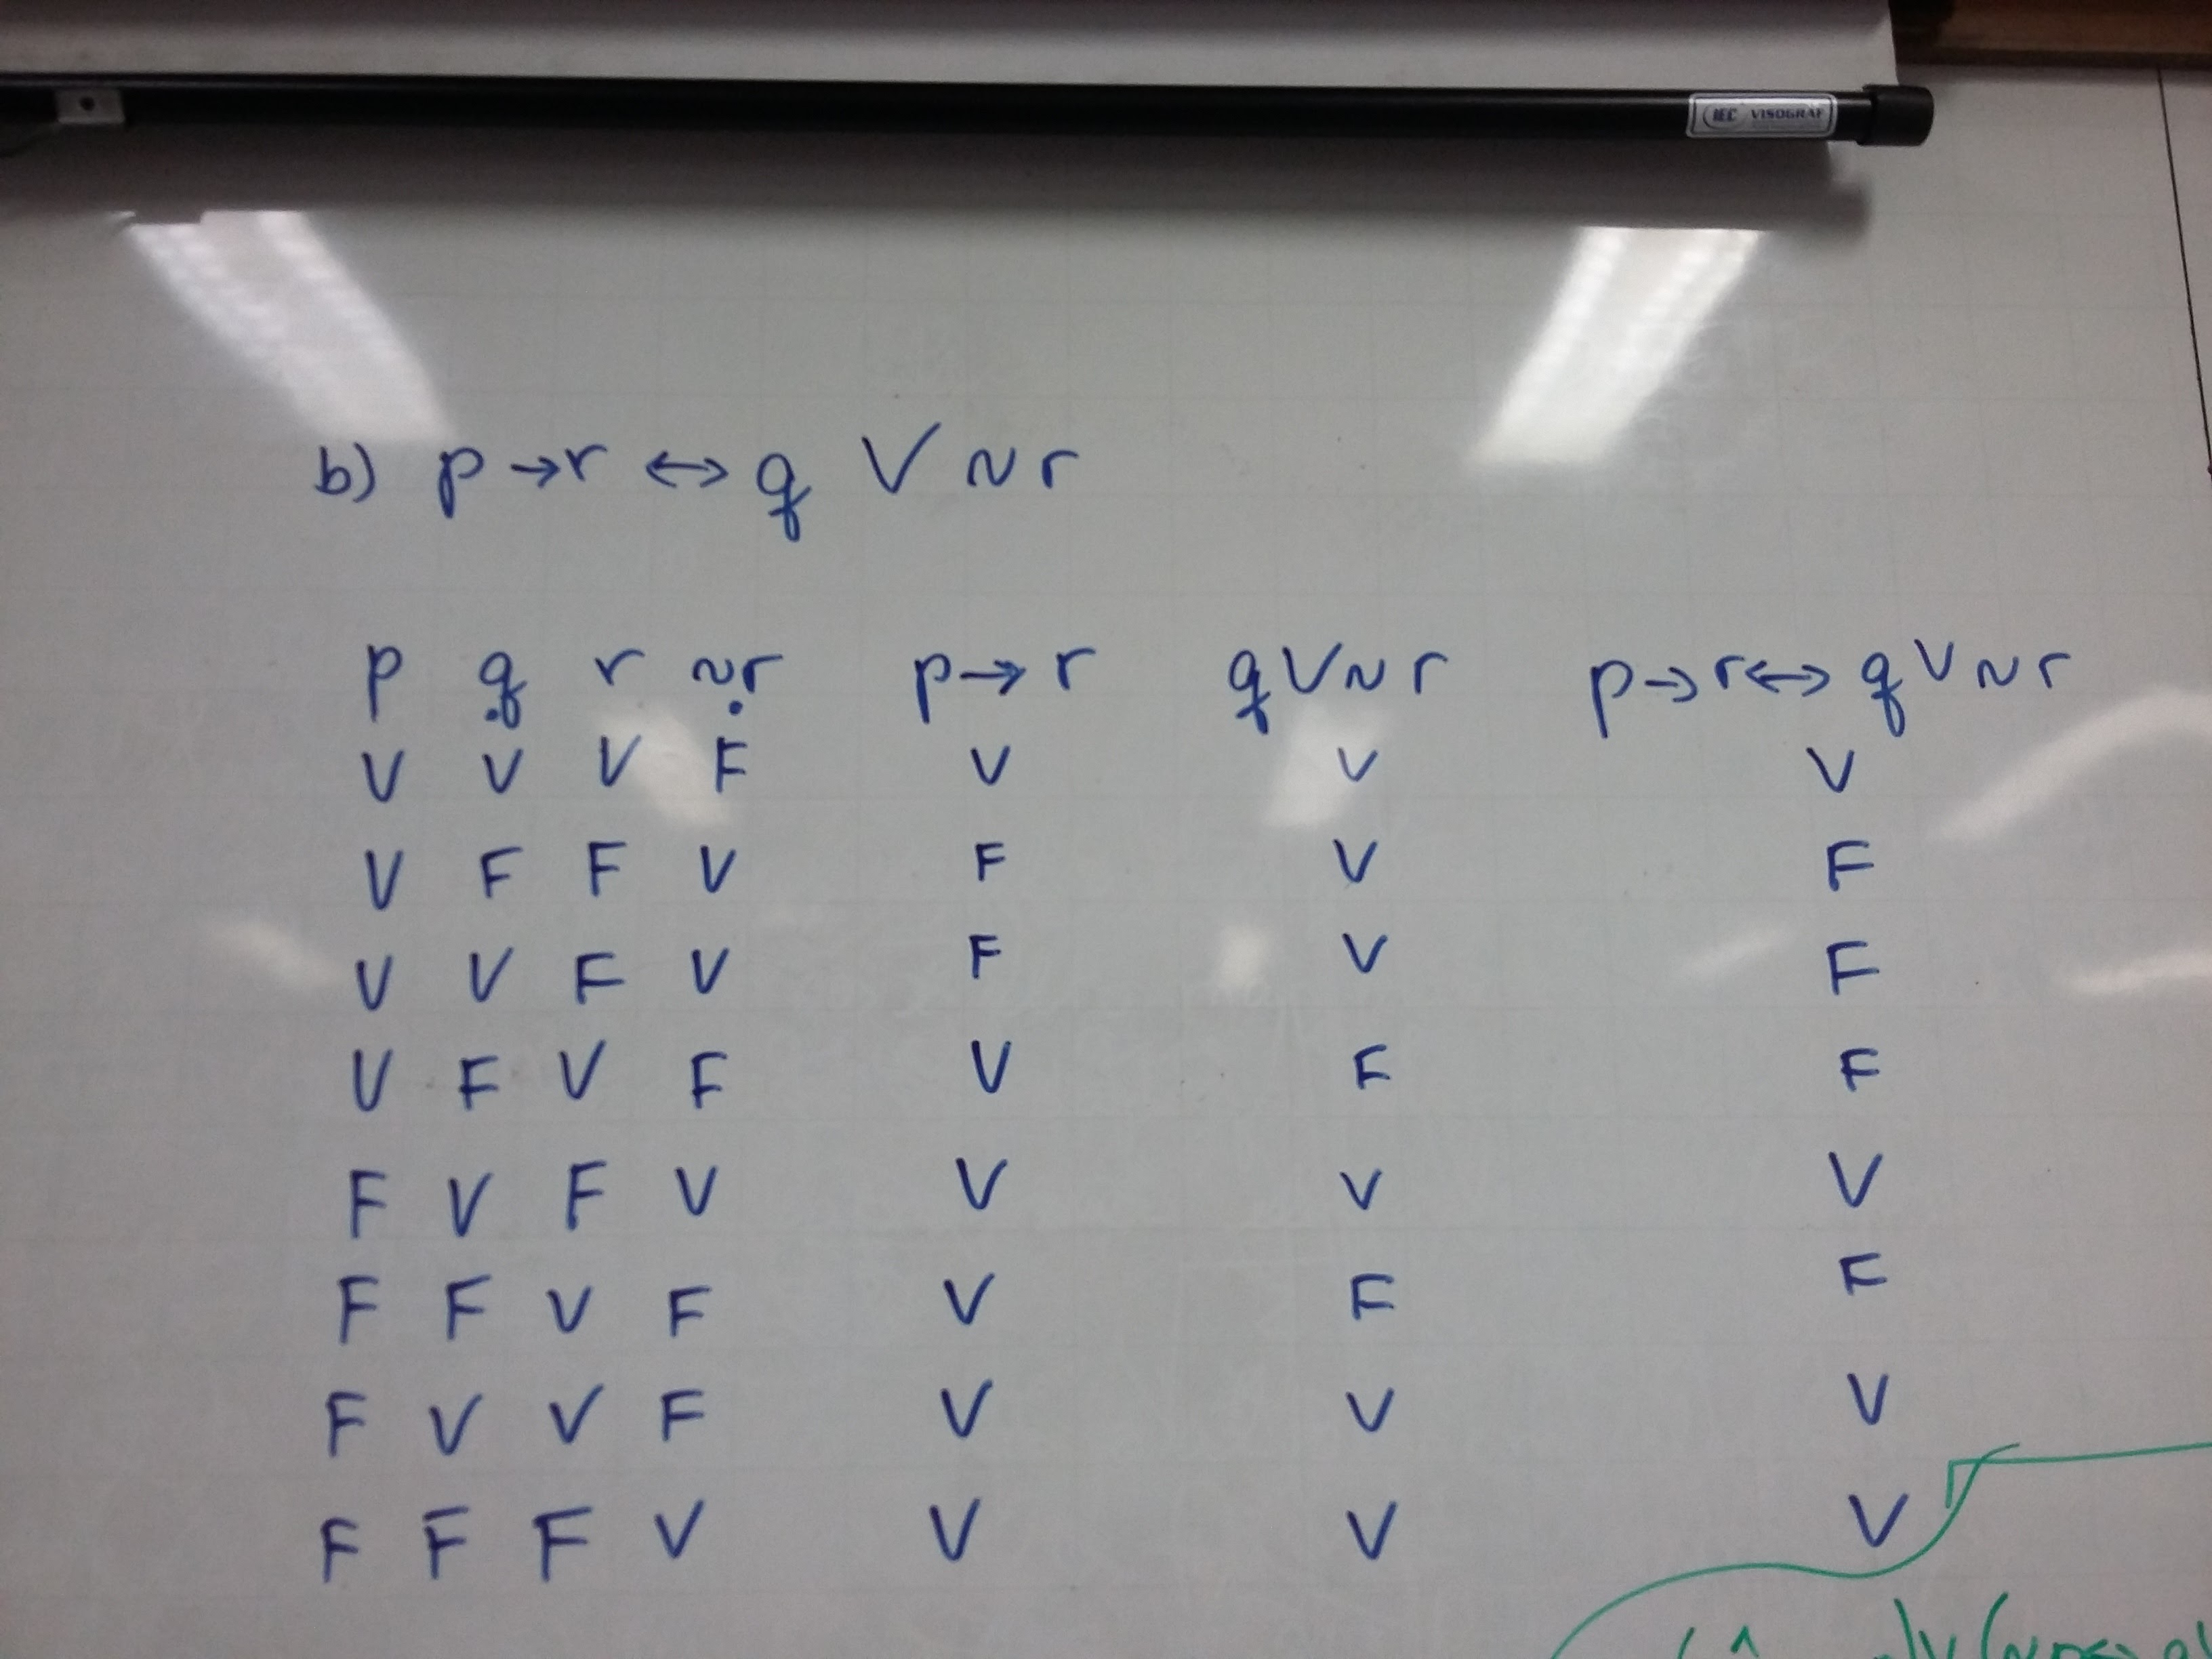 IEC VISOGRAF
b) p → r ↔ q V ~ r
p q r ~r p → r q V ~ r p → r ↔ q V ~ r
V V V F V V V
V F F V F V F
V V F V F V F
V F V F V F F
F V F V V V V
F F V F V F F
F V V F V V V
F F F V V V V